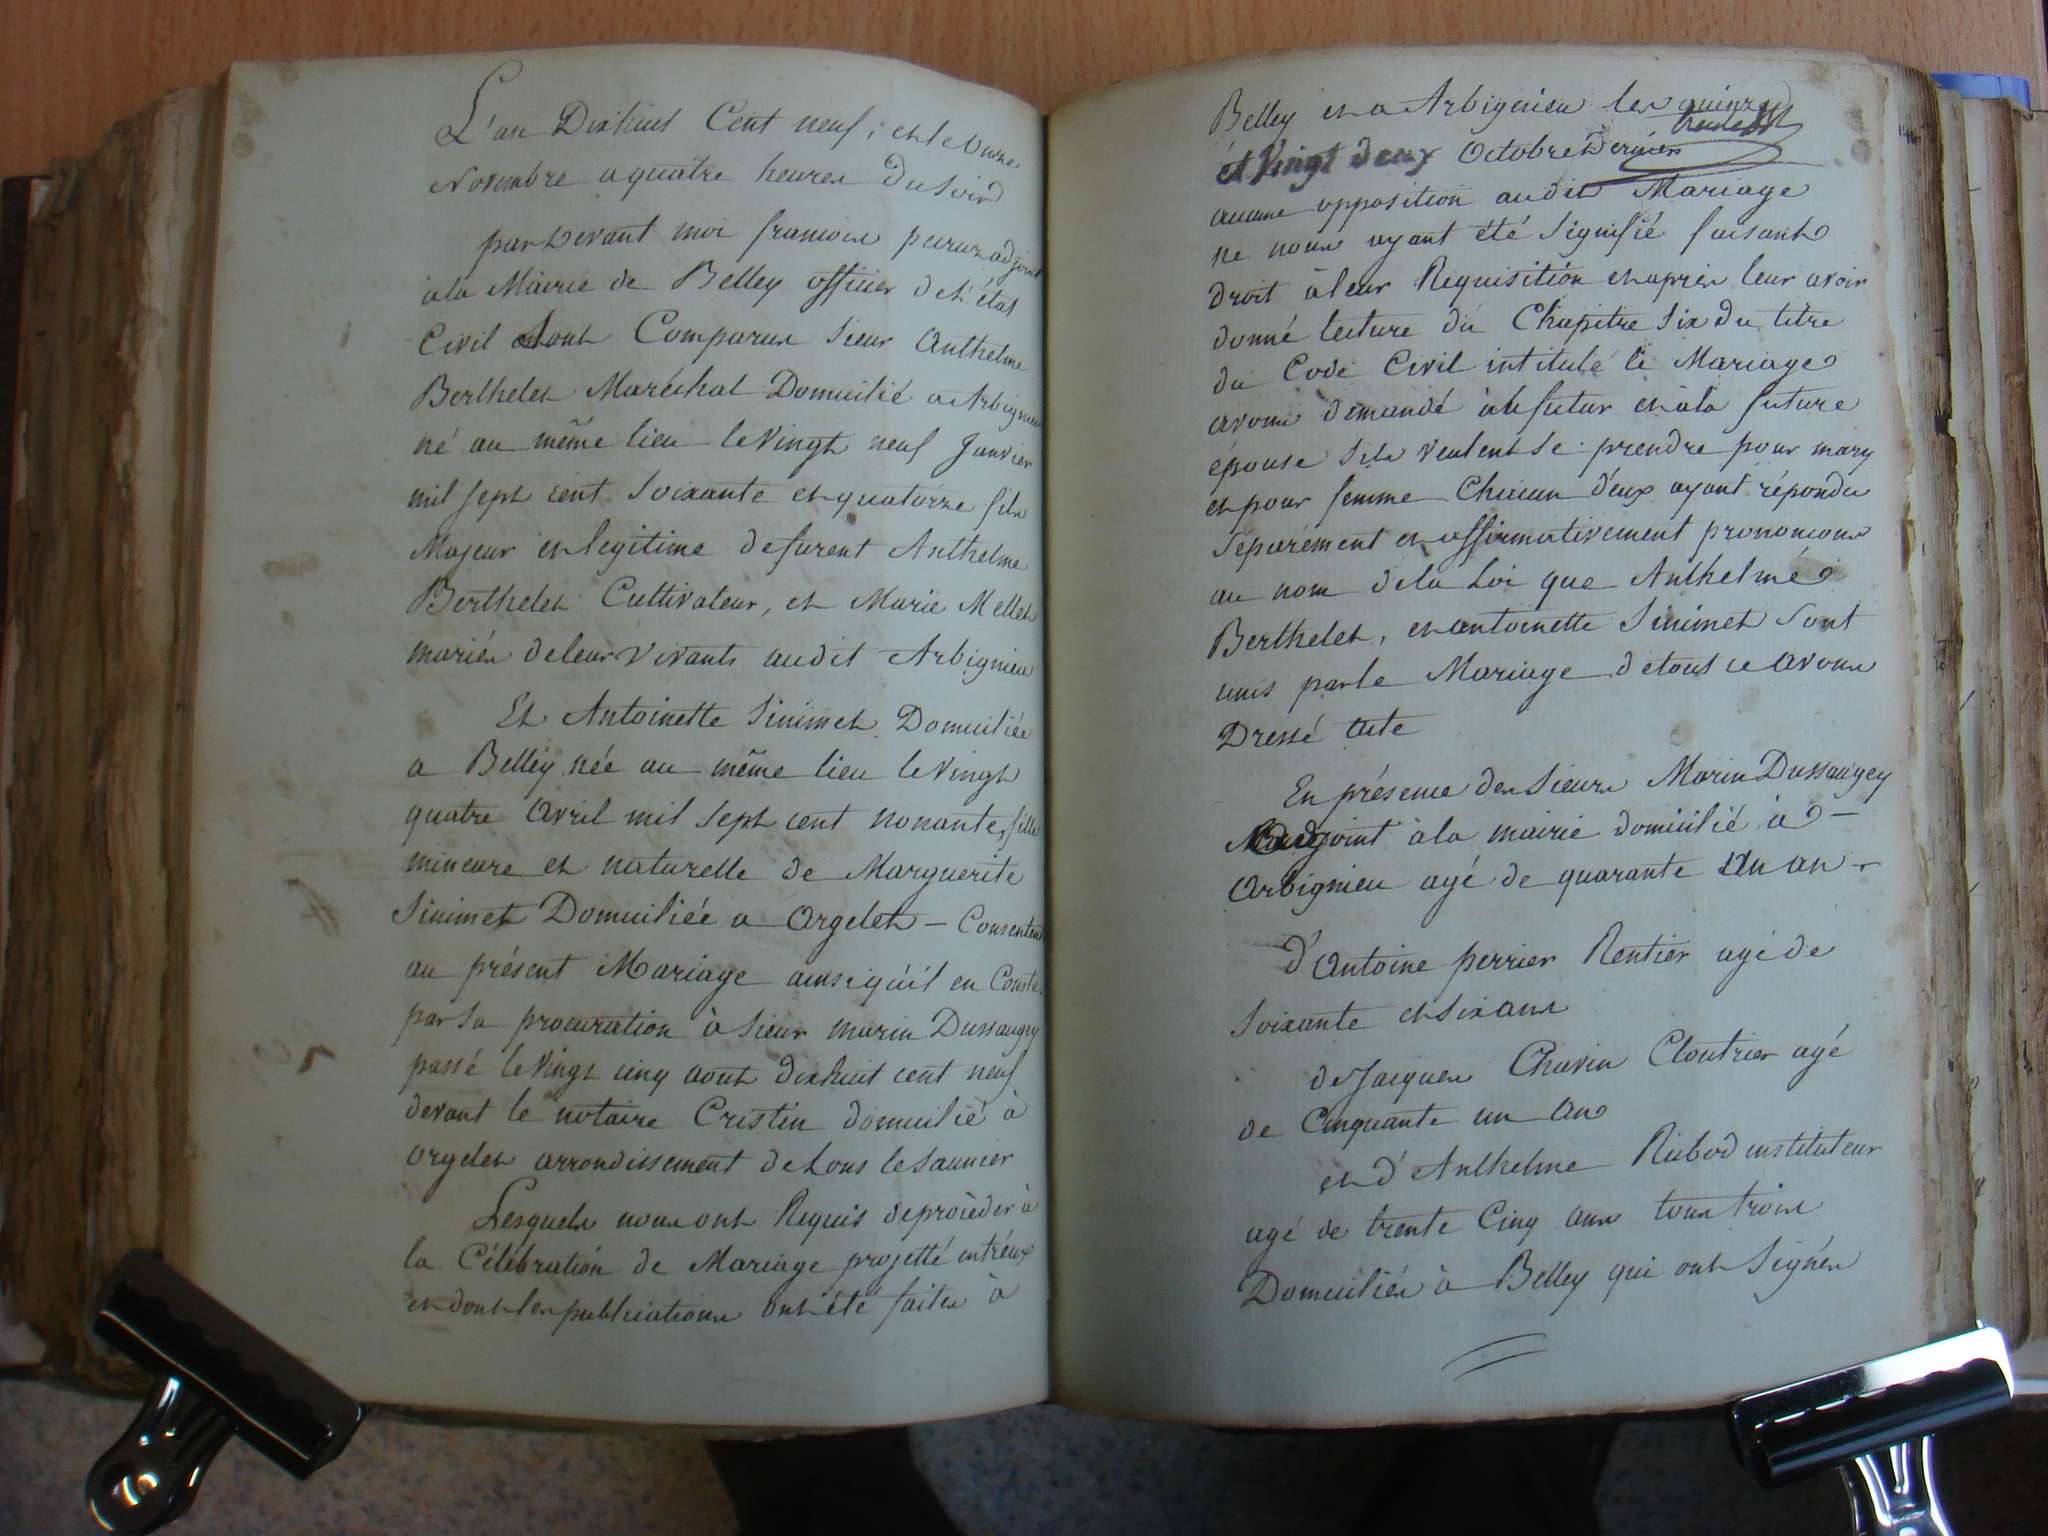 L'an Dixhuit Cent neuf; et le Onze
Novembre a quatre heures du Soir
pardevant moi francois adjoint
à la Mairie de Belley officier de l'état
Civil Sont Comparus Sieur Anthelme
Berthelet Maréchal Domicilié a Arbignieu
né au même lieu le Vingt neuf Janvier
mil sept cent Soixante et quatorze fils
Majeur et legitime de furent Anthelme
Berthelet Cultivateur, et Marie Mellet
mariés de leur Vivants audit Arbignieu
Et Antoinette Sinimet Domiciliée
a Belley née au même lieu le Vingt
quatre Avril mil Sept cent nonante, fille
mineure et naturelle de Marguerite
Sinimet Domiciliée a Orgelet – Consentent
au présent Mariage ainsi qu'il en Conste
par sa procuration à Sieur marin Dussaugey
passé le Vingt cinq aout dixhuit cent neuf
devant le notaire Cristin domicilié à
Orgelet arrondissement de Lons le Saunier
Lesquels nous ont Requis de procèder à
la Célébration de Mariage projetté entr'eux
et dont les publications ont été faites à
Belley et a Arbignieu les quinze
et Vingt deux Octobre Dernier
aucune opposition audit Mariage
ne nous ayant été Signifié faisant
droit à leur Requisition et après leur avoir
donné lecture du Chapitre Six du titre
du Code Civil intitulé le Mariage
avons demandé au futur et à la future
épouse S'ils veulent se prendre pour mary
et pour femme Chacun d'eux ayant répondu
Séparément et affirmativement prononcons
au nom de la Loi que Anthelme
Berthelet, et antoinette Sinimet Sont
unis par le Mariage de tout ce avons
Dressé acte
En présence des Sieurs Marin Dussaugey
adjoint à la mairie domicilié à –
Arbignieu agé de quarante Un an –
d'Antoine perrier Rentier agé de
Soixante et Six ans
de Jacques Chavin Cloutrier agé
de Cinquante un An
et d'Anthelme Rubod instituteur
agé de trente Cinq ans tous trois
Domiciliés à Belley qui ont Signés